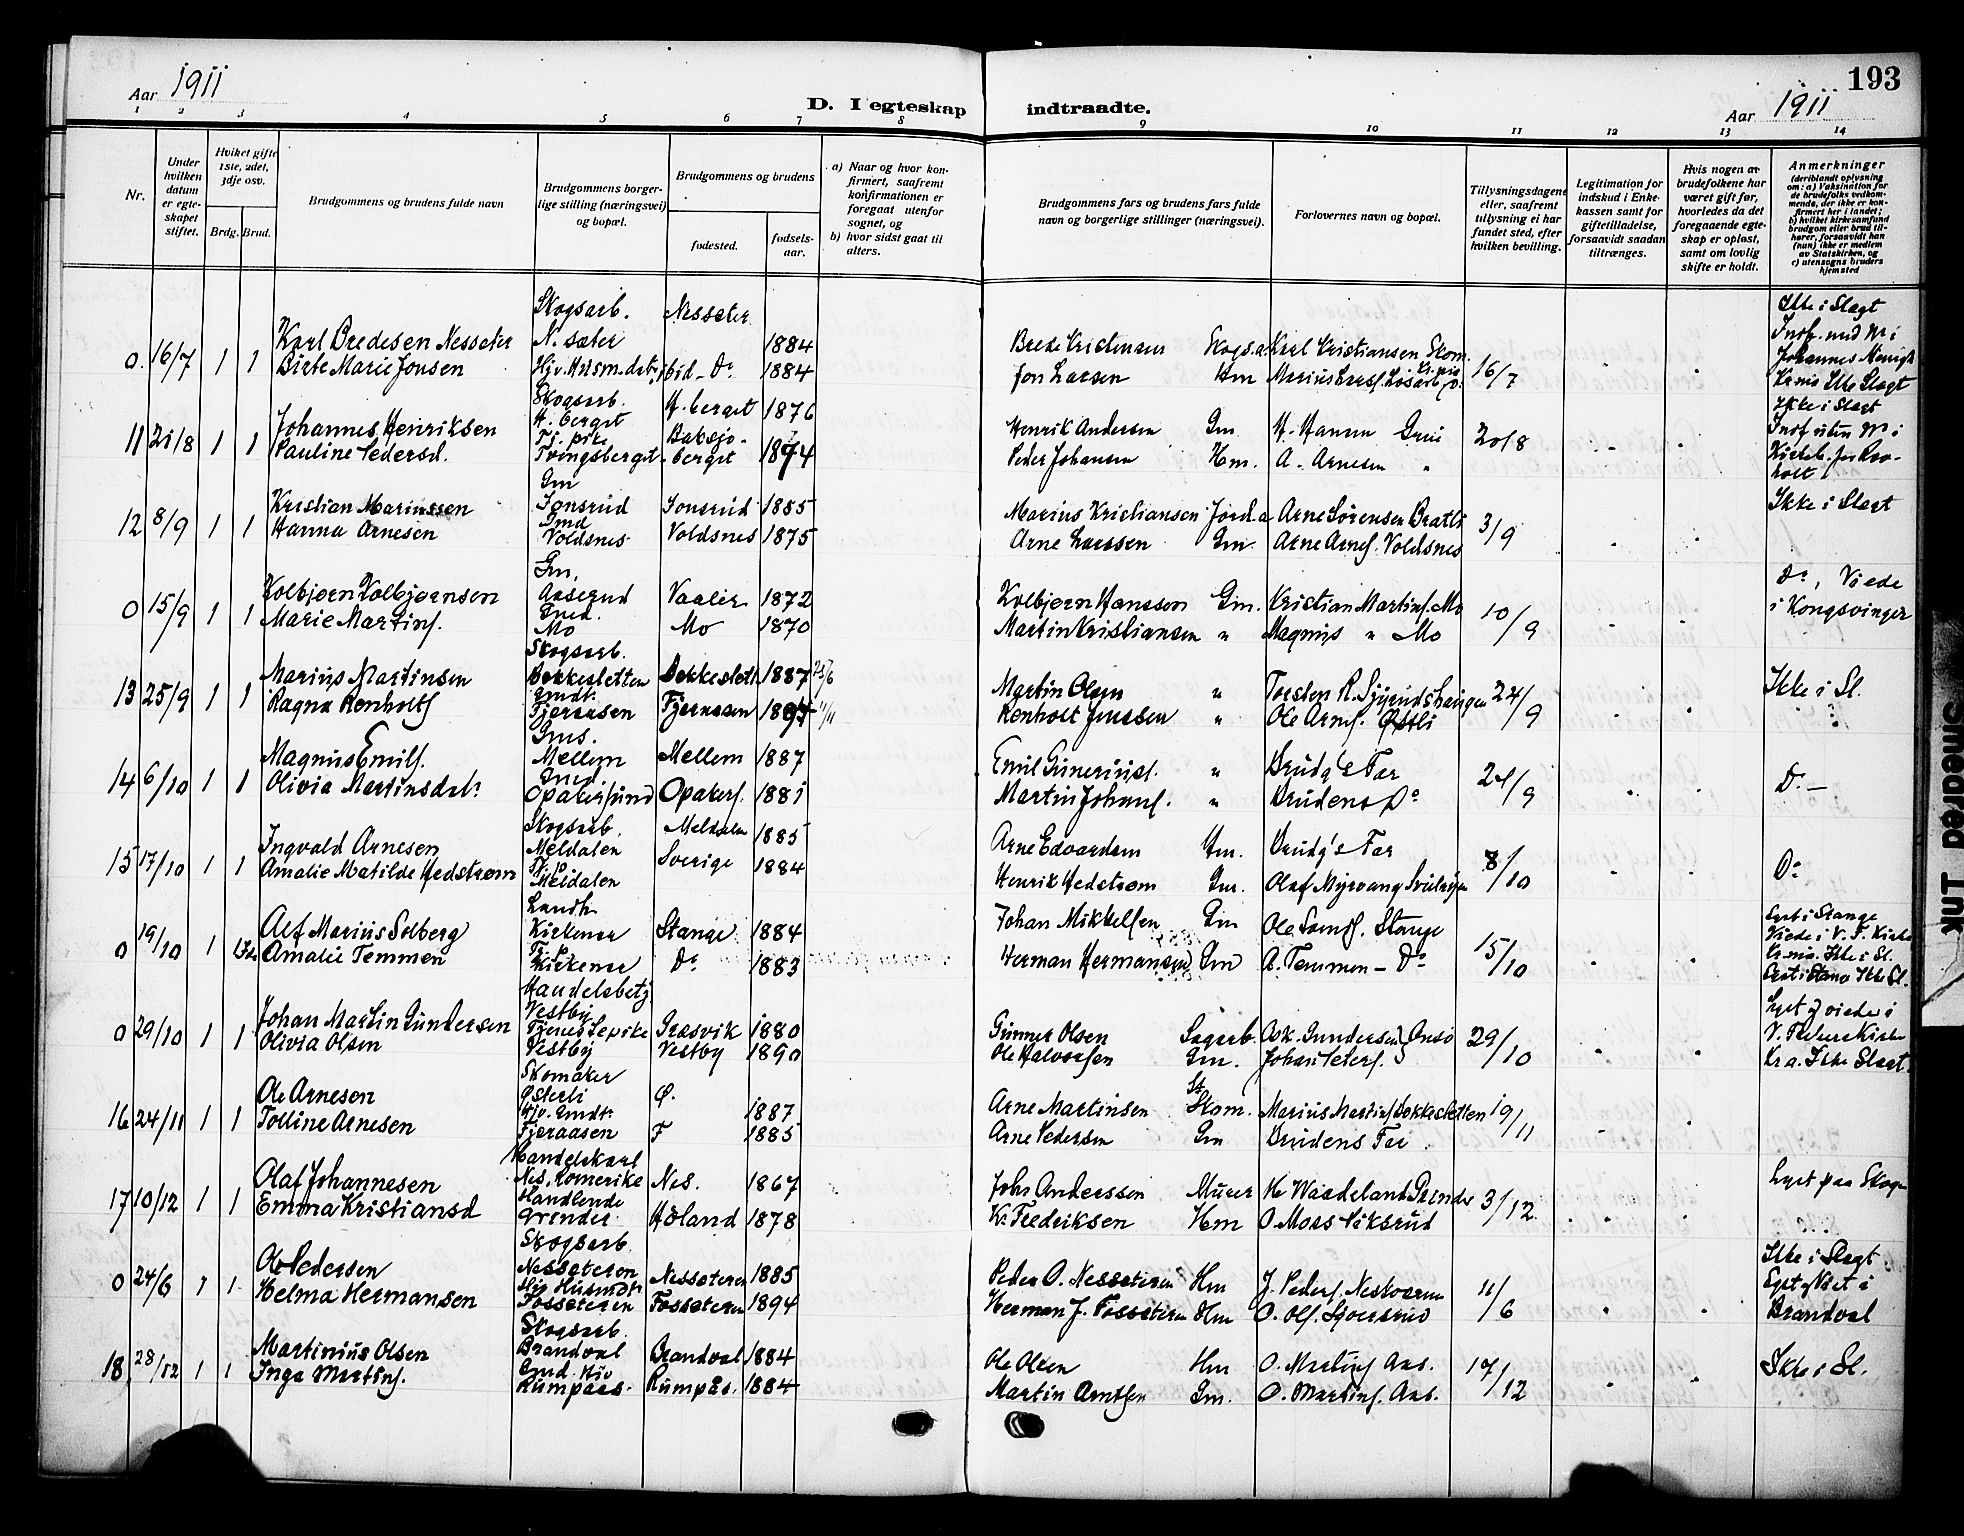 193
Aar 1911
D. I egteskap indtraadte.
Aar 1911
1 2 3 4 5 6 7 8 9 10 11 12 13 14
Nr.
Under hvilken datum er egteskapet stiftet.
Hvilket gifte 1ste, 2det, 3dje osv.
Brdg. Brud.
Brudgommens og brudens fulde navn
Brudgommens borgerlige stilling (næringsvei) og bopæl.
Brudgommens og brudens
fødested.
fødselsaar.
a) Naar og hvor konfirmert, saafremt konfirmationen er foregaat utenfor sognet, og
b) hvor sidst gaat til alters.
Brudgommens fars og brudens fars fulde navn og borgerlige stillinger (næringsvei).
Forlovernes navn og bopæl.
Tillysningsdagene eller, saafremt tillysning ei har fundet sted, efter hvilken bevilling.
Legitimation for indskud i Enkekassen samt for giftetilladelse, forsaavidt saadan tiltrænges.
Hvis nogen av brudefolkene har været gift før, hvorledes da det foregaaende egteskap er opløst, samt om lovlig skifte er holdt.
Anmerkninger
(deriblandt oplysning om: a) Vaksination for de brudefolks vedkommende, der ikke er konfirmert her i landet; b) hvilket kirkesamfund brudgom eller brud tilhører, forsaavidt han (hun) ikke er medlem av Statskirken, og c) utensogns bruders hjemsted
Skogsarb. Nessæter Ikke i Slagt
0. 16/7 1 1 Karl Bredesen Nessæter N. sæter 1884 Brede Kristensen Skogsa. Karl Kristiansen Skom. 16/7
Birte Marie Jonsen Hjv. Husm.datr. ibid - Do 1884 Jon Larsen Hm
Skogsarb.
11 21/8 1 1 Johannes Henriksen H. berget H. berget 1876 Henrik Andersen Gm H. Hansen Grue 20/8 Ikke i Slagt
Pauline Pedersd. Tj. pike Tvingsberget Baksjøberget 1874 Peder Johansen Hm. A. Arnesen "
Gm
12 8/9 1 1 Kristian Marinssen Jonsrud Jonsrud 1855 Marius Kristiansen Jord.a Arne Sørensen Bratli 3/9 Ikke i Slagt
Hanna Arnesen Gmd Voldsnes Voldsnes 1875 Arne Larssen Gm. Arne Arnes. Voldsnes
Gm.
0 15/9 1 1 Kolbjørn Kolbjørnsen Aaserud Vaaler 1872 Kolbjørn Hansson Gm. Kristian Martins. Mo 10/9 Do, Viede i Kongsvinger
Marie Martins. Gmd. Mo Mo 1870 Martin Kristiansen " Magnus " Mo
Skogsarb.
13 25/9 1 1 Marius Martinsen Bekkesletten Bekkeslett. 1887 Martin Olsen " 24/9 Ikke i Sl.
Ragna Renholts Gmdt. Fjeraasen Fjeraasen Renholt Jenssen " Ole Arnes. Østli
Gms.
14 6/10 1 1 Magnus Emils. Mellem Mellem 1887 Emil Guneriuss. " Brudg's Far 24/9 Do —
Olivia Martinsdatr. Gmd. Opakersund Opakers. 1881 Martin Johans. " Brudens Do
Skogsarb.
15 17/10 1 1 Ingvald Arnesen Meldalen Meldalen 1885 Arne Edvardsen Hm. Brudg's Far 8/10 Do
Amalie Matilde Hedstrøm Tj. p. Meldalen Sverige 1884 Henrik Hedstrøm Gm.
Landh.
0 19/10 1 Alf Marius Solberg Kirkenær Stange 1884 Johan Mikkelsen Gm Stange 15/10
Amalie Temmen Tj. p. Kirkenær Do 1883 Herman Hermansen Gm A. Temmen - Do
Handelsbetj.
0 29/10 1 1 Johan Martin Gundersen Vestby Græsvik 1880 Gunner Olsen Sagarb. Ask. Gundersen Onsø 29/10 Lyst & viede i
Olivia Olsen Tjenestepike Vestby Vestby 1890 Ole Halvorsen Gm. Johan Peters. Kr.a. Ikke Slagt.
Skomaker
16 24/11 1 1 Ole Arnesen Østerli Ø. 1887 Arne Martinsen Skom. Marius Martins. Bekkesletten 19/11
Tolline Arnesen Hjv. Gmdtr. Fjeraasen F 1885 Arne Pedersen Gm Brudens Far.
Handelskarl
17 10/12 1 1 Olaf Johannesen Nes, Romerike Nes. 1867 Johs Anderssen Murer 3/12 Lyst paa Skogn
Emma Kristiansd Handlende Grinder Høland 1878 K. Fredriksen Hm
Skogsarb.
0 24/6 1 1 Ole Pedersen Nessæteren Nessæteren 1885 Peder O. Nessæteren Hm J. Peders. 11/6 Ikke i Slagt
Helma Hermansen Hjv. Husmdtr. Fossæteren Fossæteren 1894 Herman J. Fossæteren Hm Brandval
Skogsarb.
18. 28/12 1 1 Martinius Olsen Brandval Brandval 1884 Ole Olsen Hm O. Martins. Aas. 17/12 Ikke i Sl.
Inga Martins. Gmd. Hjv Rumpaas. Rumpås. 1884 Martin Arntsen Gm. O. Martins. Aas.
Smeared Ink